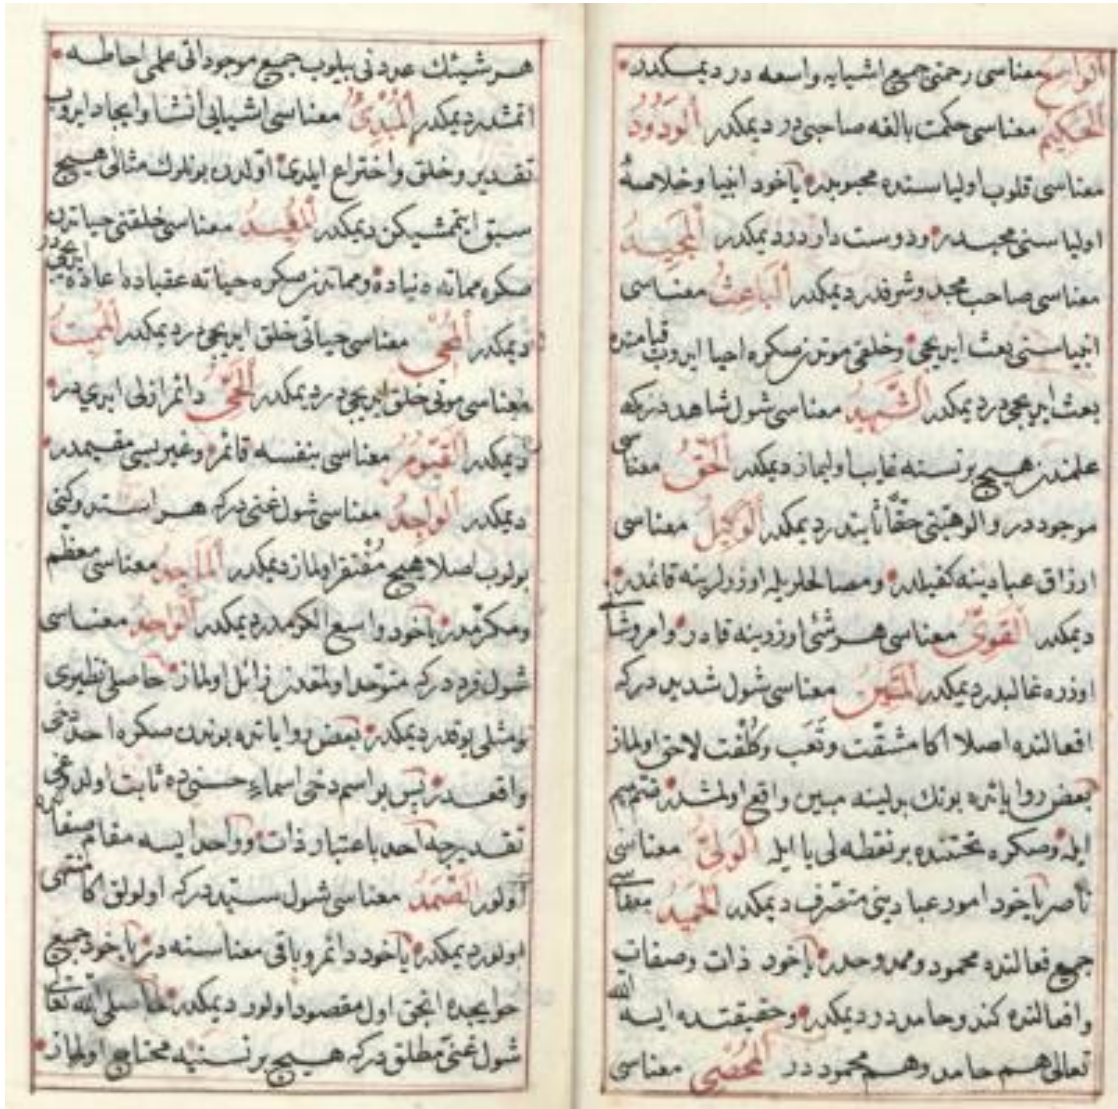 الواسع معناسى رحمتى جميع اشيايه واسعه در ديمكدر
الحكيم معناسى حكمت بالغه صاحبى در ديمكدر الودود
معناسى قلوب اولياسنده محبوبدر ياخود انبيا وخلاصهٔ
اولياسنى محبدر ودوست دارد ديمكدر المجيد
معناسى صاحب مجد وشرفدر ديمكدر الباعث معناسى
انبياسنى بعث ايديجى وخلقى موتدن صكره احيا ايدوب قيامتده
بعث ايديجيدر ديمكدر الشهيد معناسى شول شاهددركه
علمندن هيچ برنسنه غايب اولماز ديمكدر الحق معناسى
موجوددر والوهيتى حقا ثابتدر ديمكدر الوكيل معناسى
ارزاق عبادينه كفيلدر ومصالحلريله اوزرلرينه قائمدر
ديمكدر القوى معناسى هر شئ اوزرينه قادر وامر وشانى
اوزره غالبدر ديمكدر المتين معناسى شول شديددركه
افعالنده اصلا اكا مشقت وتَعَب وكُلْفت لاحق اولماز
بعض رواياتده بونك بدلينه مبين واقع اولمشدر ضم ميم
ايله وصكره تحتنده بر نقطه لى با ايله الولى معناسى
ناصر ياخود امور عبادينى متصرف ديمكدر الحميد معناسى
جميع فعالنده محمود وممدوحدر ياخود ذات وصفات
وافعالنده كندو حامددر ديمكدر وحقيقتده ايسه الله
تعالى هم حامد وهم محموددر المحصى معناسى
هر شيئك عددنى بيلوب جميع موجوداتى علمى احاطه
اتمشدر ديمكدر المبدئ معناسى اشيايى انشا وايجاد ايدوب
تقدير وخلق واختراع ايلدى اولدن بونلرك مثالى هيچ
سبق ايتمشيكن ديمكدر المعيد معناسى خلقنى حياتدن
صكره مماته دنياده ومماتدن صكره حياته عقباده اعاده ايديجيدر
ديمكدر المحيى معناسى حياتى خلق ايديجيدر ديمكدر المميت
معناسى موتى خلق ايديجيدر ديمكدر الحى دائم ازلى ابدىدر
ديمكدر القيوم معناسى بنفسه قائم وغيريسى مقيمدر
ديمكدر الواجد معناسى شول غنىدركه هر استدوكنى
بولوب اصلا هيچ مُفتقر اولماز ديمكدر الماجد معناسى معظم
ومكرمدر ياخود واسع الكرمدر ديمكدر الواحد معناسى
شول فرددركه متوحد اولمقدن زائل اولماز حاصلى نظيرى
ومثلى يوقدر ديمكدر بعض رواياتده بوندن صكره احد دخى
واقعدر پس بو اسم دخى اسماء حسنىده ثابت اولور
تقديرجه احد باعتبار ذات وواحد ايسه مقام صفاته
اولور الصمد معناسى شول سيددركه اولولق اكا منتهى
اولور ديمكدر ياخود دائم وباقى معناسنهدر ياخود جميع
حوايجده انجق اول مقصود اولور ديمكدر حاصلى الله تعالى
شول غنئ مطلقدركه هيچ برنسنيه محتاج اولماز